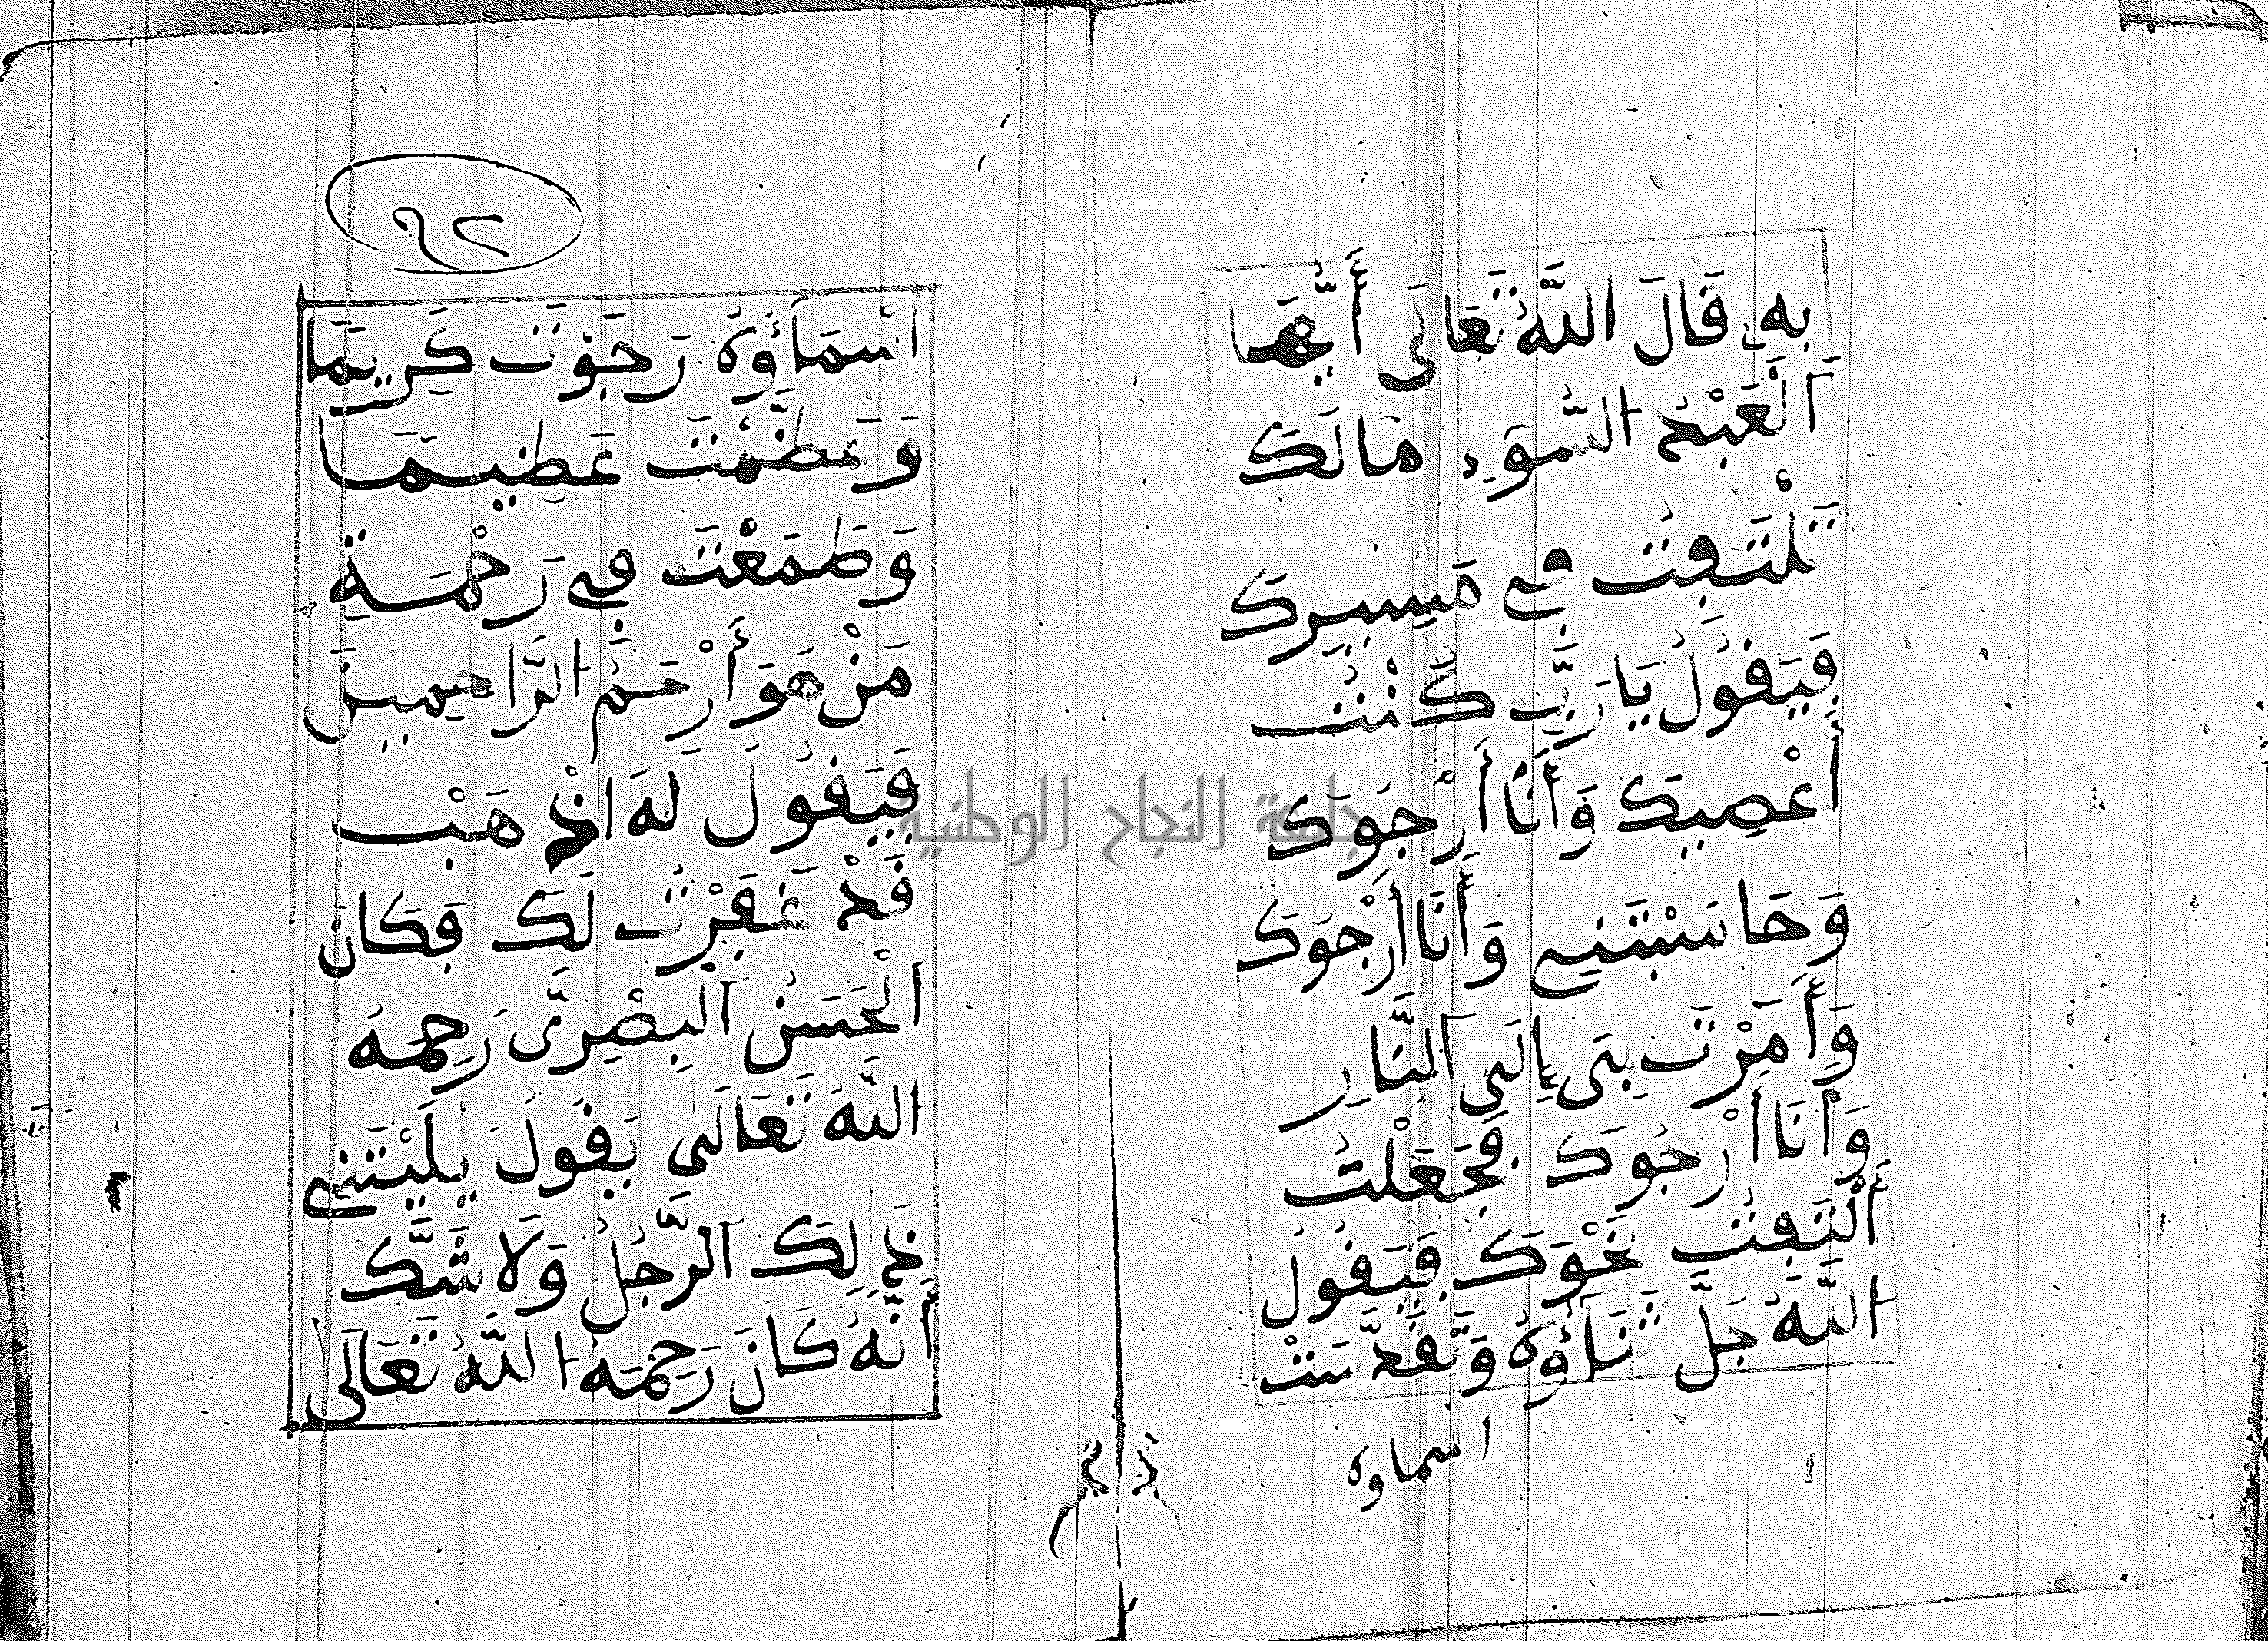 بِهِ قَالَ اللَّهُ تَعَالَى أَيُّهَا
الْعَبْدُ السَّوْءِ مَا لَكَ
تَلْتَفِتُ فِي مَسِيرِكَ
فَيَقُولُ يَا رَبِّ كُنْتُ
أَعْصِيكَ وَأَنَا أَرْجُوكَ
وَحَاسَبْتَنِي وَأَنَا أَرْجُوكَ
وَأَمَرْتَ بِي إِلَى النَّارِ
وَأَنَا أَرْجُوكَ فَجَعَلْتُ
أَلْتَفِتُ نَحْوَكَ فَيَقُولُ
اللَّهُ جَلَّ ثَنَاؤُهُ وَتَقَدَّسَتْ
اسماوه
٩٢
اَسْمَاؤُهُ رَجَوْتَ كَرِيمًا
وَعَظَّمْتَ عَظِيمًا
وَطَمَعْتَ فِي رَحْمَةِ
مَنْ هُوَ أَرْحَمُ الرَّاحِمِينَ
فَيَقُولُ لَهُ اذْهَبْ
قَدْ غَفَرْتُ لَكَ فَكَانَ
الْحَسَنُ الْبِصْرِيُّ رَحِمَهُ
اللَّهُ تَعَالَى يَقُولُ يَلَيْتَنِي
ذَلِكَ الرَّجُلُ وَلَا شَكَّ
أَنَّهُ كَانَ رَحِمَهُ اللَّهُ تَعَالَى
جامعة النجاح الوطنية